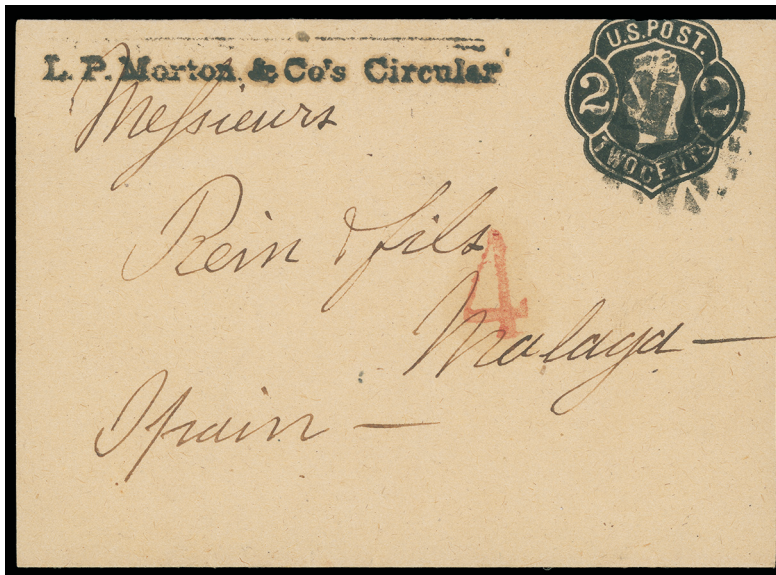 L. P. Morton & Co's Circular
U.S. POST.
2 2
TWO CENTS
Messieurs
Rein & fils
4
Malaga —
Spain —